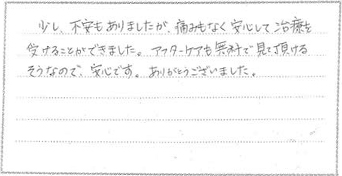 少し、不安もありましたが、痛みもなく安心して治療を
受けることができました。アフターケアも無料で見て頂ける
そうなので、安心です。ありがとうございました。